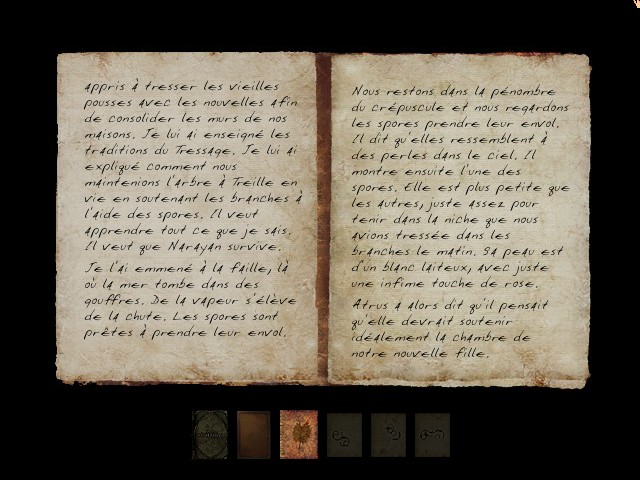 appris à tresser les vieilles
pousses avec les nouvelles afin
de consolider les murs de nos
maisons. Je lui ai enseigné les
traditions du Tressage. Je lui ai
expliqué comment nous
maintenions l'arbre à Treille en
vie en soutenant les branches à
l'aide des spores. Il veut
apprendre tout ce que je sais.
Il veut que Narayan survive.
Je l'ai emmené à la faille, là
où la mer tombe dans des
gouffres. De la vapeur s'élève
de la chute. Les spores sont
prêtes à prendre leur envol.
Nous restons dans la pénombre
du crépuscule et nous regardons
les spores prendre leur envol.
Il dit qu'elles ressemblent à
des perles dans le ciel. Il
montre ensuite l'une des
spores. Elle est plus petite que
les autres, juste assez pour
tenir dans la niche que nous
avions tressée dans les
branches le matin. Sa peau est
d'un blanc laiteux, avec juste
une infime touche de rose.
Atrus a alors dit qu'il pensait
qu'elle devrait soutenir
idéalement la chambre de
notre nouvelle fille.